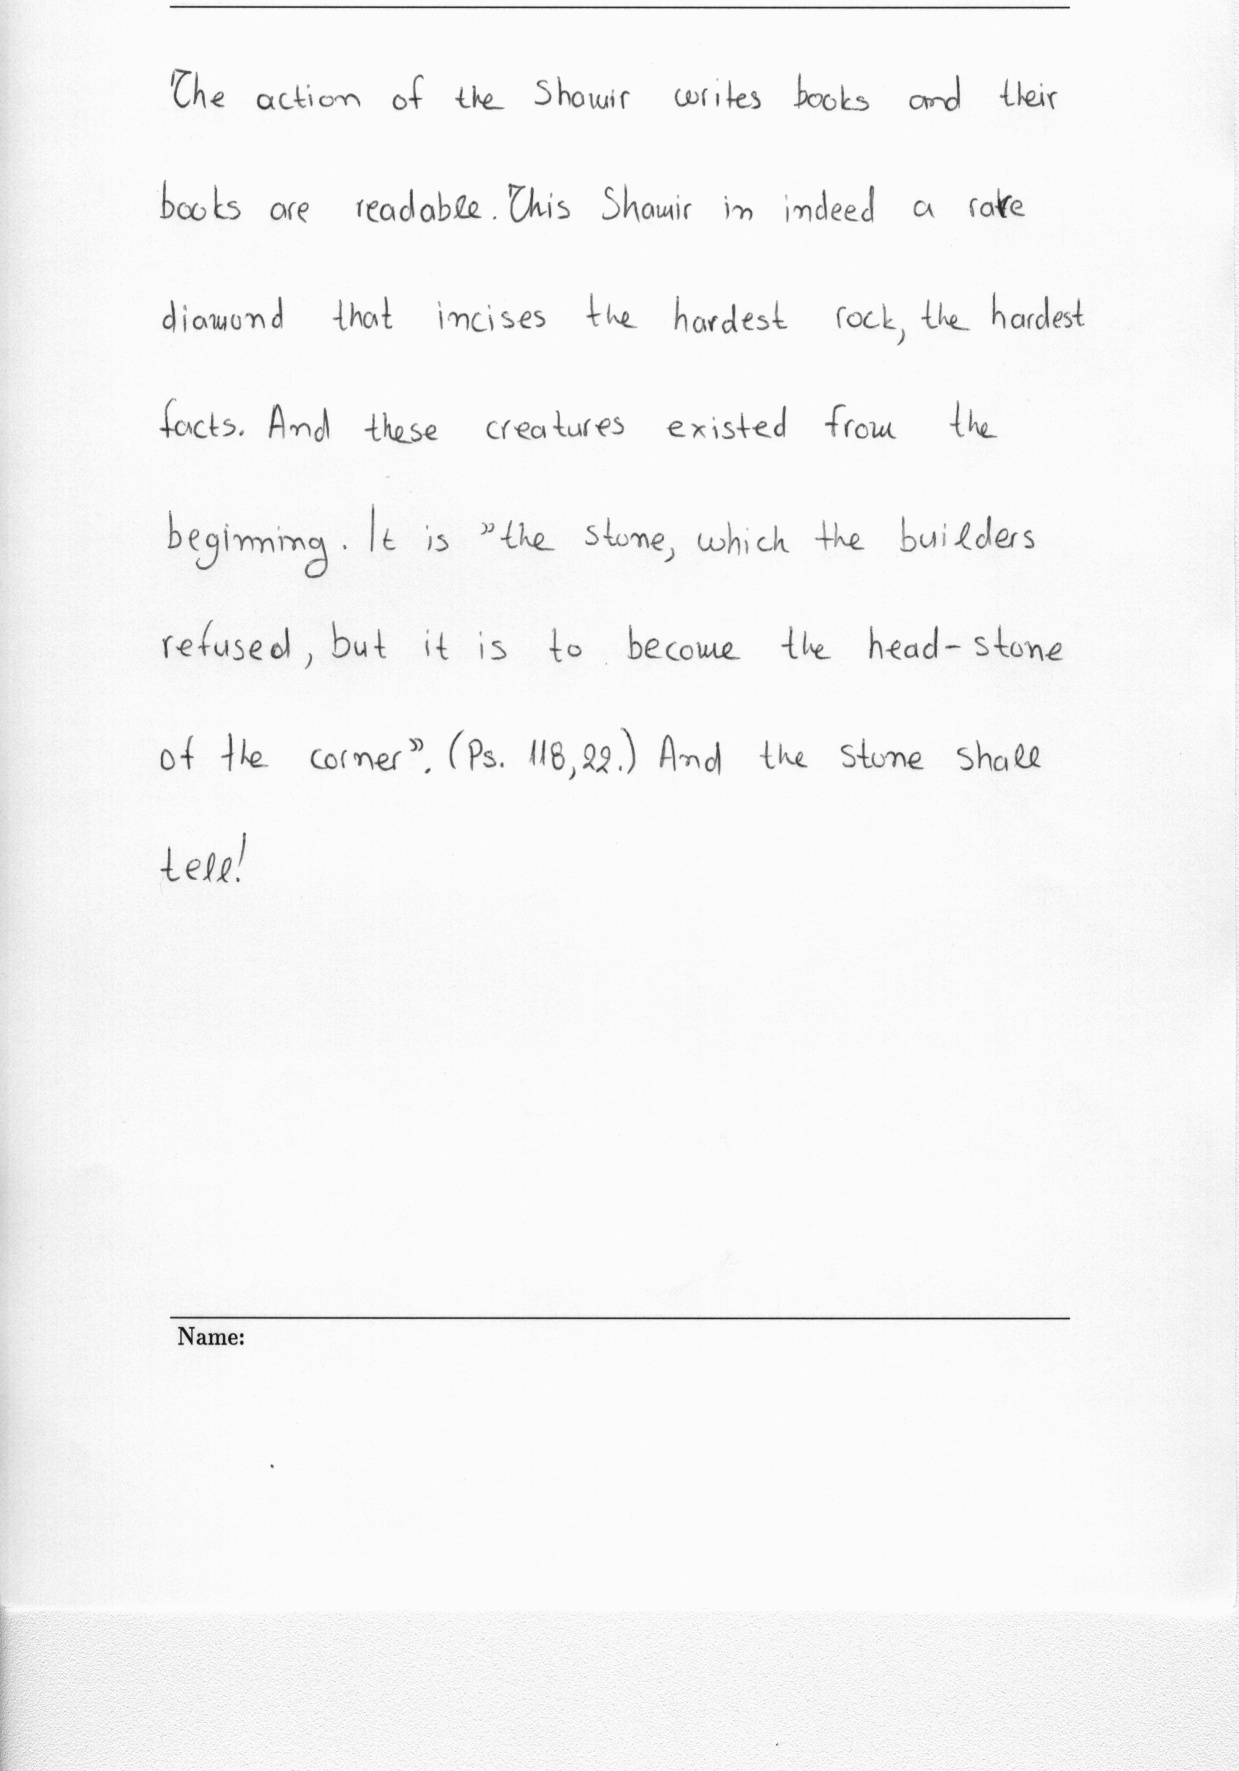 The action of the Shamir writes books and their
books are readable. This Shamir in indeed a rare
diamond that incises the hardest rock, the hardest
facts. And these creatures existed from the
beginning. It is "the stone, which the builders
refused, but it is to become the head-stone
of the corner". (Ps. 118,22.) And the stone shall
tell!
Name: